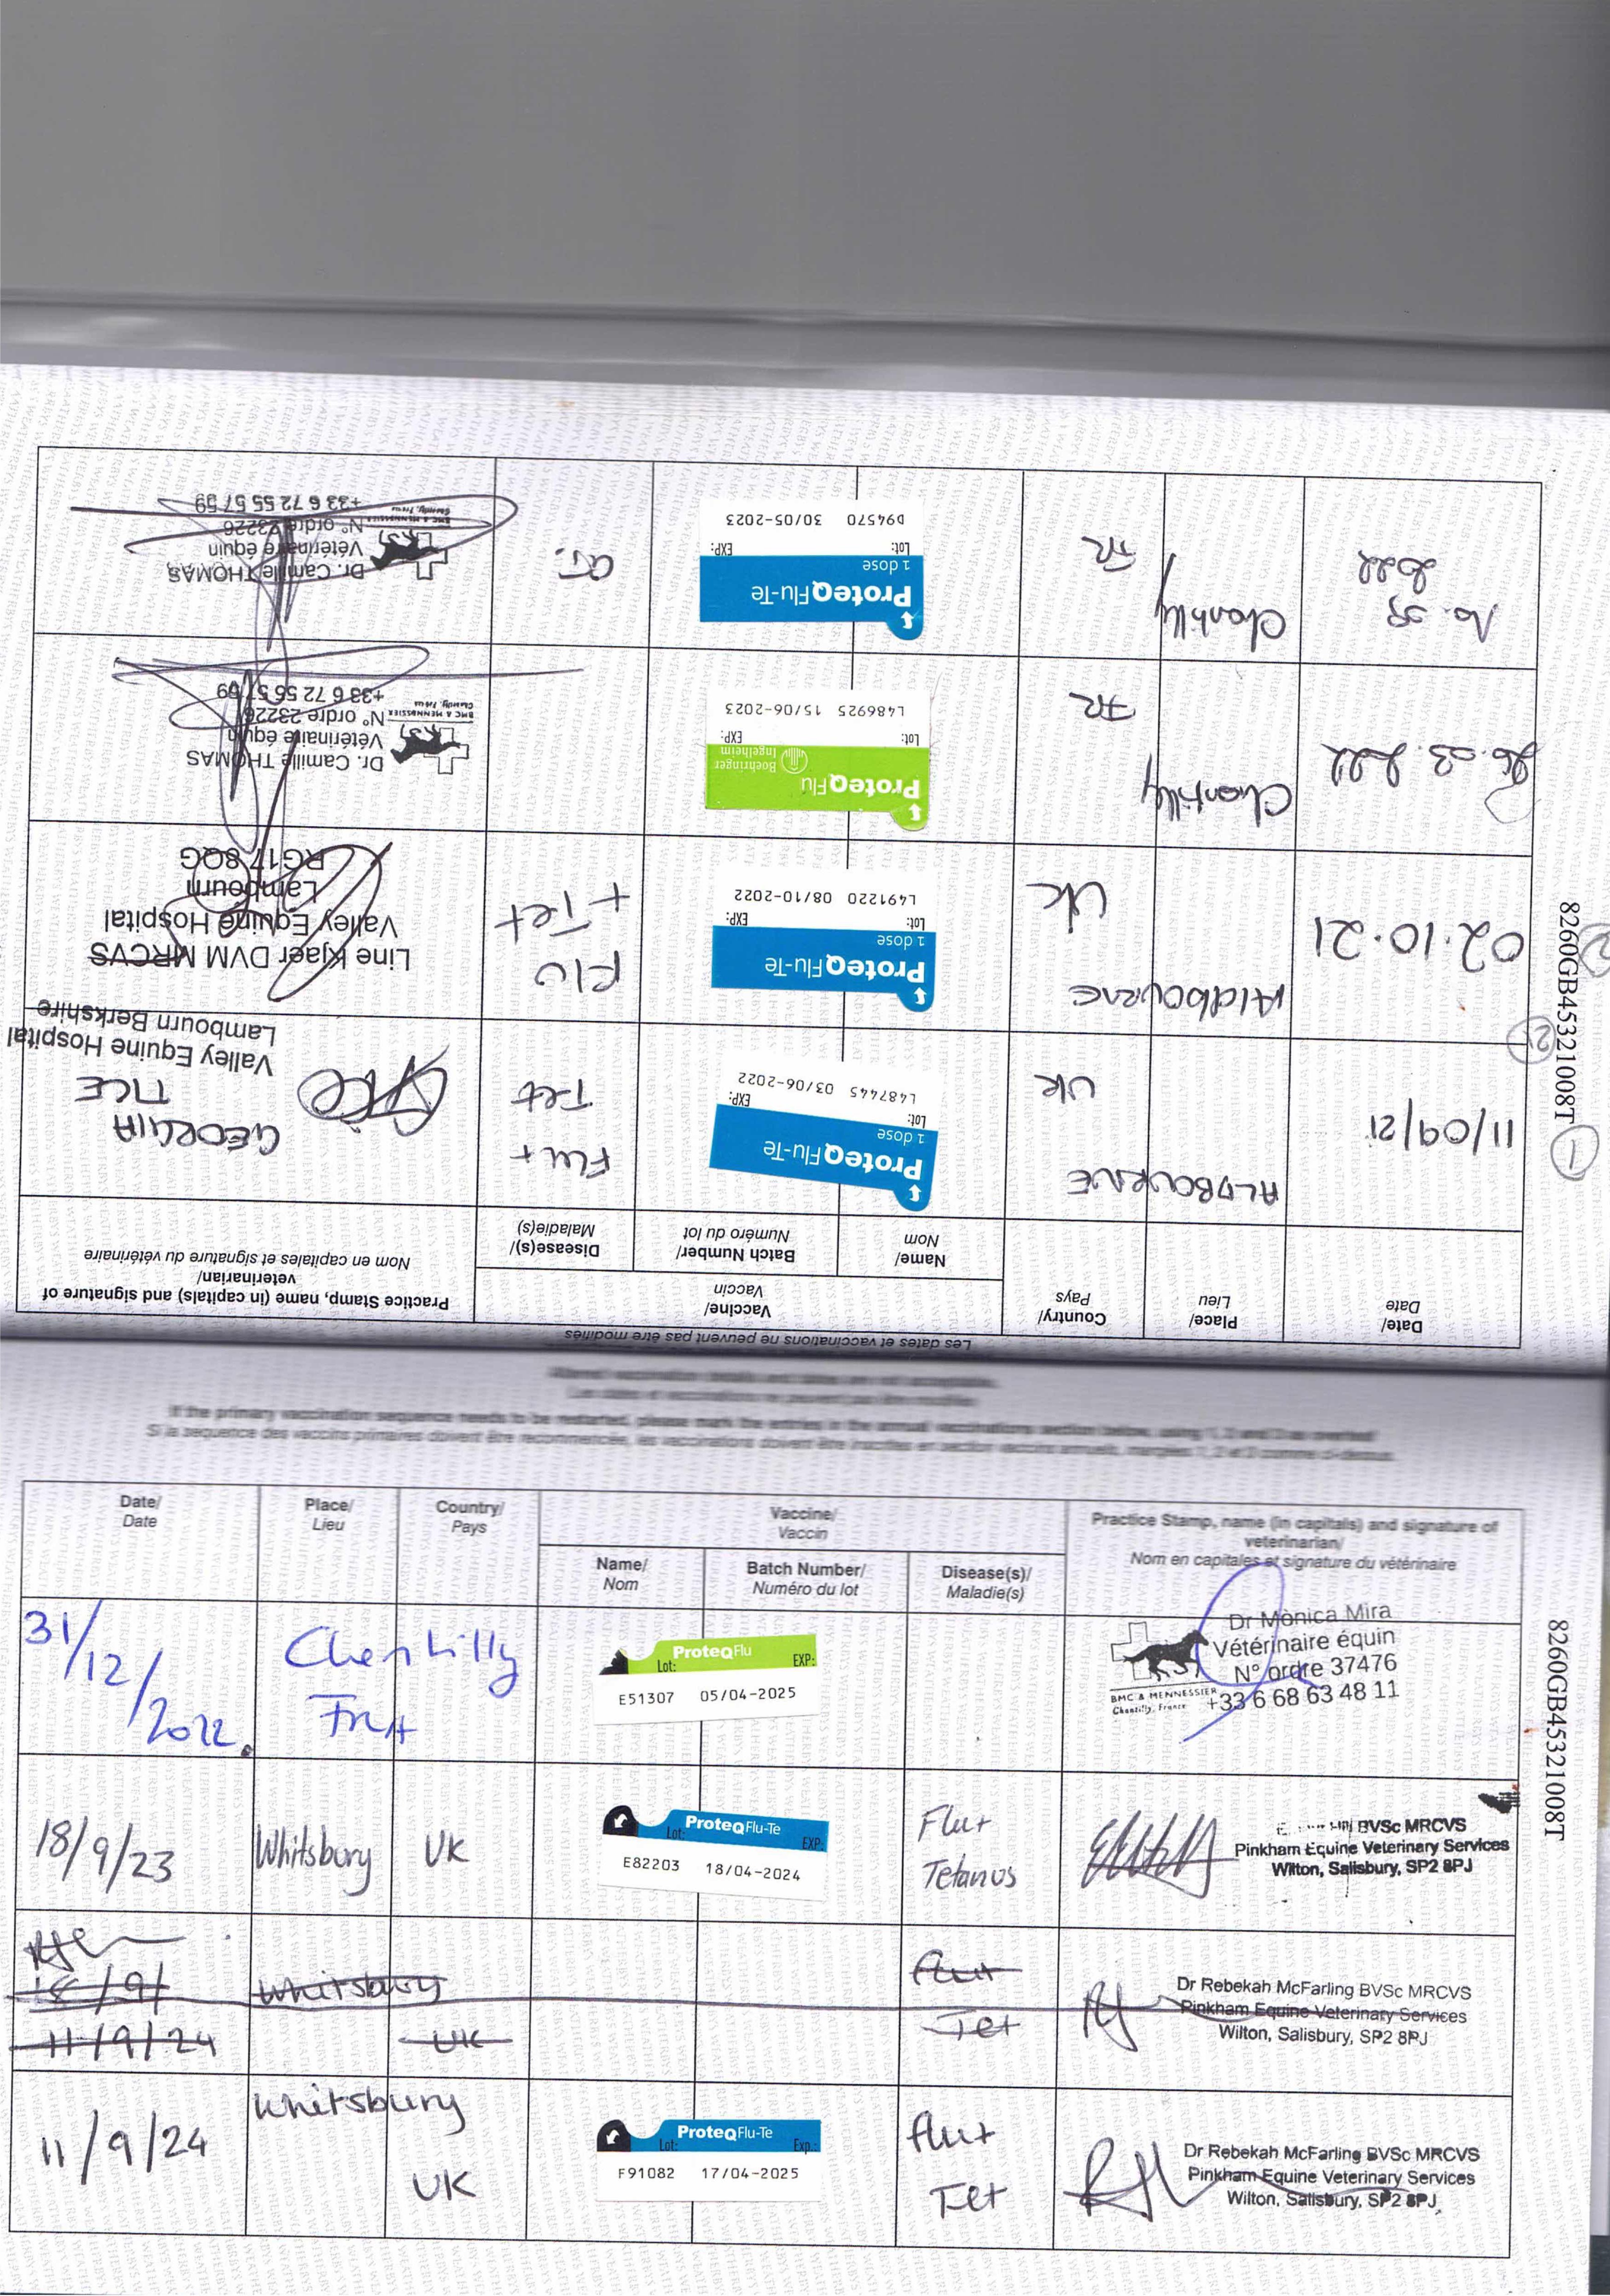 Les dates et vaccinations ne peuvent pas être modifiés
Date/
Date
Place/
Lieu
Country/
Pays
Vaccine/
Vaccin
Name/
Nom
Batch Number/
Numéro du lot
Disease(s)/
Maladie(s)
Practice Stamp, name (in capitals) and signature of
veterinarian/
Nom en capitales et signature du vétérinaire
8260GB45321008T
1
11/09/21
ALDBOURNE
UK
ProteqFlu-Te
1 dose
Lot: EXP:
L487445 03/06-2022
Flu +
Tet
GEORGIA
TICE
Valley Equine Hospital
Lambourn Berkshire
2
02.10.21
Aldbourne
UK
ProteqFlu-Te
1 dose
Lot: EXP:
L491220 08/10-2022
Flu
+ Tet
Line Kjaer DVM MRCVS
Valley Equine Hospital
Lambourn
RG17 8QG
26.03.2022
Chantilly
FR
ProteqFlu
Boehringer
Ingelheim
Lot: EXP:
L486925 15/06-2023
Dr. Camille THOMAS
Vétérinaire équin
N° ordre 23226
+33 6 72 55 57 59
BMC & MENNESSIER
Chantilly, France
2022
Chantilly
FR
ProteqFlu-Te
1 dose
Lot: EXP:
D94570 30/05-2023
Dr. Camille THOMAS
Vétérinaire équin
N° ordre 23226
+33 6 72 55 57 59
BMC & MENNESSIER
Chantilly, France
Altered vaccination details and dates are not acceptable.
Les dates et vaccinations ne peuvent pas être modifiés
If the primary vaccination sequence needs to be restarted, please mark the entries in the annual vaccinations section below, using 1, 2 and 3 as overleaf
Si la sequence des vaccins primaires doivent être recommencée, les vaccinations doivent être inscrites en section vaccins annuels, marquées 1, 2 et 3 comme ci-dessus.
Date/
Date
Place/
Lieu
Country/
Pays
Vaccine/
Vaccin
Name/
Nom
Batch Number/
Numéro du lot
Disease(s)/
Maladie(s)
Practice Stamp, name (in capitals) and signature of
veterinarian/
Nom en capitales et signature du vétérinaire
8260GB45321008T
31/12/2022.
Chantilly
FRA
ProteqFlu
Lot: EXP:
E51307 05/04-2025
Dr Mònica Mira
Vétérinaire équin
N° ordre 37476
+33 6 68 63 48 11
BMC & MENNESSIER
Chantilly, France
18/9/23
Whitsbury
UK
ProteqFlu-Te
Lot: EXP:
E82203 18/04-2024
Flu +
Tetanus
BVSc MRCVS
Pinkham Equine Veterinary Services
Wilton, Salisbury, SP2 8PJ
18/9/
11/9/24
Whitsbury
UK
flu +
Tet
Dr Rebekah McFarling BVSc MRCVS
Pinkham Equine Veterinary Services
Wilton, Salisbury, SP2 8PJ
11/9/24
Whitsbury
UK
ProteqFlu-Te
Lot: Exp.:
F91082 17/04-2025
flu +
Tet
Dr Rebekah McFarling BVSc MRCVS
Pinkham Equine Veterinary Services
Wilton, Salisbury, SP2 8PJ